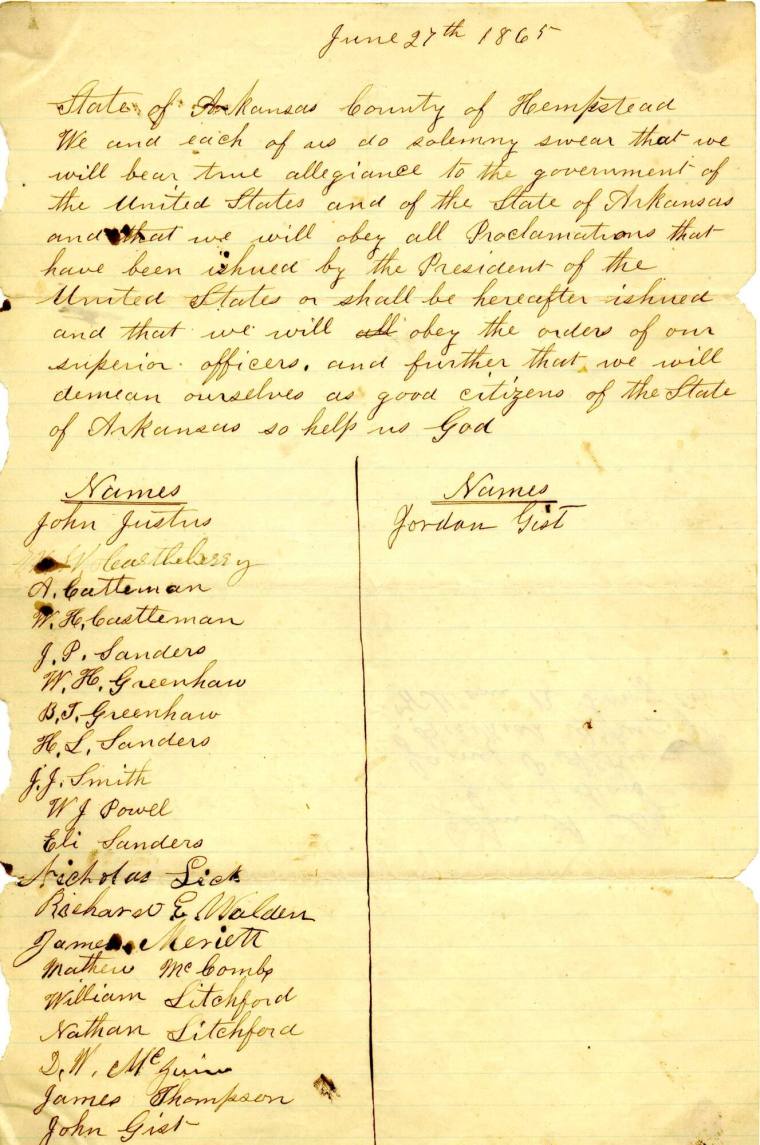 June 27th 1865
State of Arkansas County of Hempstead
We and each of us do solemny swear that we
will bear true allegiance to the government of
the United States and of the State of Arkansas
and that we will obey all Proclamations that
have been ishued by the President of the
United States or shall be hereafter ishued
and that we will all obey the orders of our
superior officers. and further that we will
demean ourselves as good citizens of the State
of Arkansas so help us God
Names
John Justus
A. Catteman
W. H. Castleman
J. P. Sanders
W. H. Greenhaw
B. T. Greenhaw
H. L. Sanders
J. J. Smith
W J Powel
Eli Sanders
Nicholas Lick
Richard E Walden
James Meriett
Mathew McCombs
William Litchford
Nathan Litchford
D. W.
James Thompson
John Gist
Names
Jordan Gist